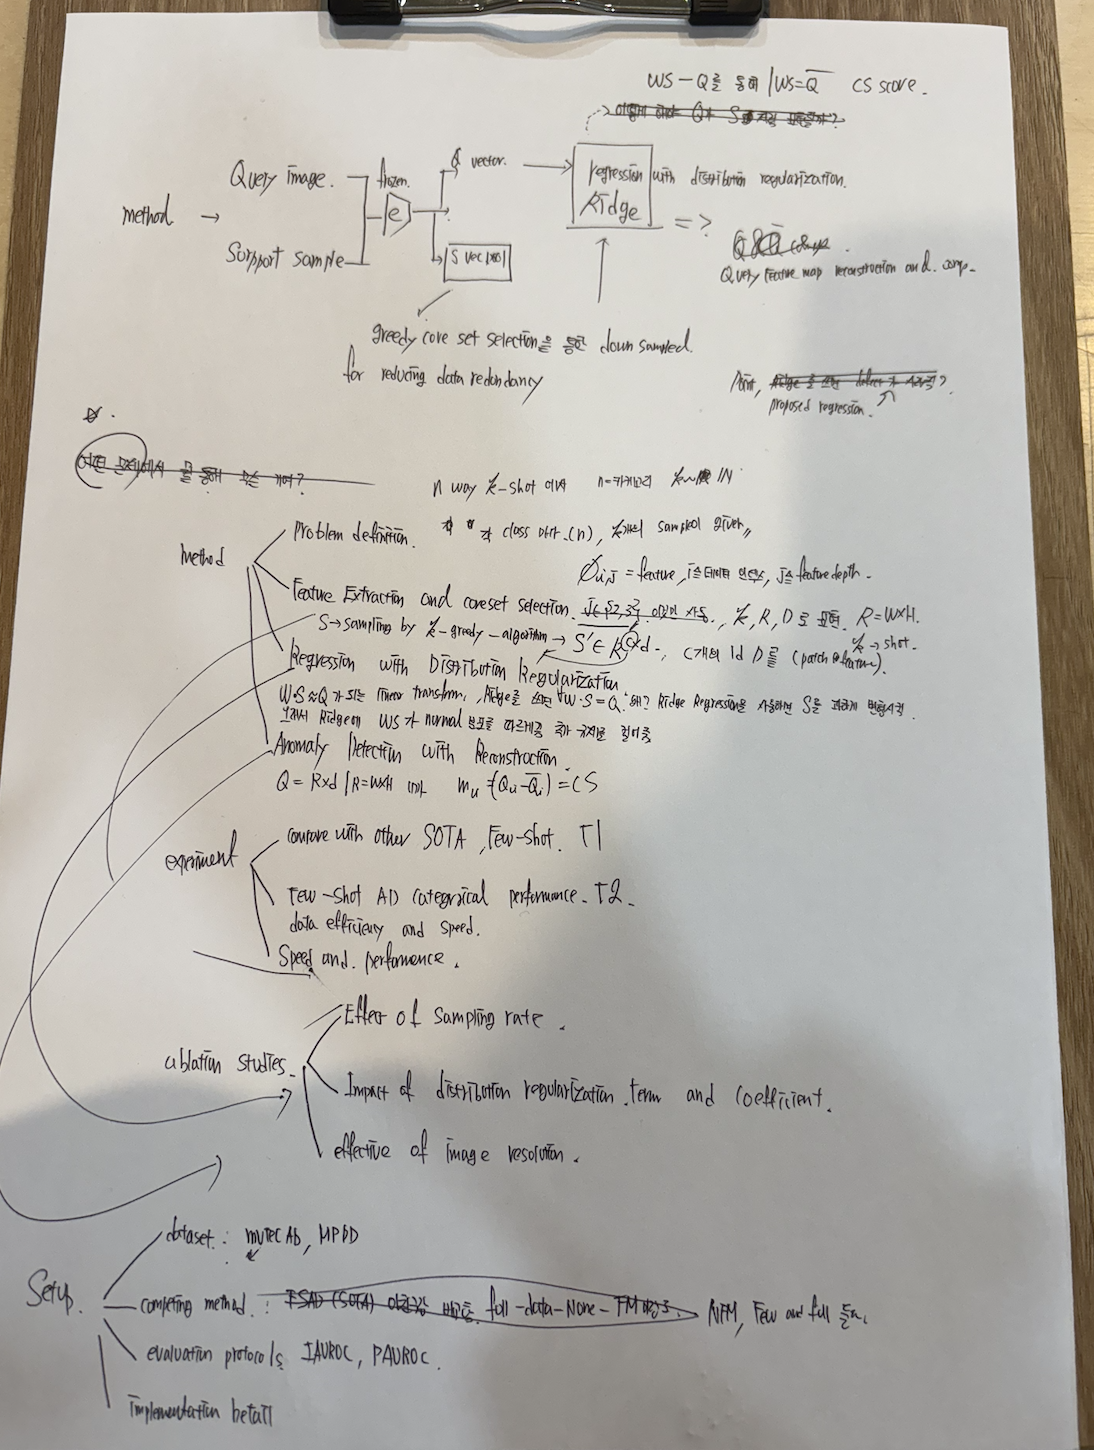 WS-Q를 통해 |WS=Q̅ CS score.
Query image.
frozen.
Q vector.
regression with distribution regularization.
Ridge
method →
e
=> ?
Support sample
S vec pool
Query feature map reconstruction and. comp.
greedy core set selection을 통한 down sampled.
for reducing data redundancy
Point,
proposed regression.
어떤 문제에서 뭘 통해 무슨 기여?
n way k-shot 에서 n=카테고리
Problem definition. 각 class 마다 (n), k개의 sample이 given,,
method
Øi,j = feature, i는 데이터 인덱스, j는 feature depth.
Feature Extraction and coreset selection. J∈{2,3}, k, R, D로 표현. R=W×H.
k → shot.
S→sampling by k-greedy-algorithm → S'∈R c×d., C개의 1d D를 (patch feature).
Regression with Distribution Regularization
W·S≈Q 가 되는 linear transform, Ridge를 쓰면 W·S=Q. 왜? Ridge Regression을 사용하면 S를 과하게 변형시킴
그래서 Ridge에 WS가 normal 분포를 따르게끔 추가 규제를 걸어줌
Anomaly Detection with Reconstruction.
Q = R×d | R=W×H mu =(Qu-Q̅i)=CS
experiment
compare with other SOTA, Few-shot. T1
Few-shot AD categorical performance. T2.
data efficiency and speed.
Speed and. performence.
Effect of sampling rate.
ablation studies.
Impact of distribution regularization.term and coefficient.
effective of image resolution.
dataset: mvtec AD, MPDD
Setup.
competing method.: FSAD (SOTA) full-data-None-FM NFM, Few and full 둘다.
evaluation protocols IAUROC, PAUROC.
implementation Detail